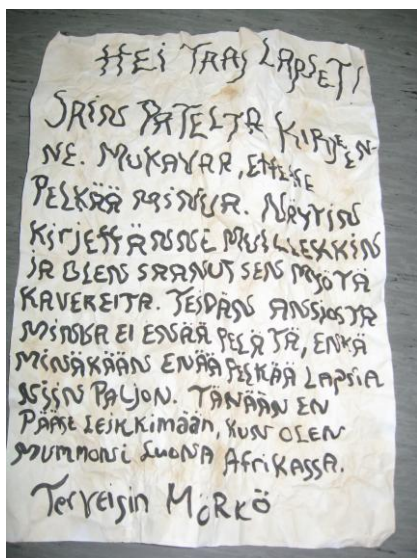 HEI TAAS LAPSET!
SAIN PATELTA KIRJEEN-
NE. MUKAVAA, ETTETTE
PELKÄÄ MINUA. NÄYTIN
KIRJETTÄNNE MUILLEKKIN
JA OLEN SAANUT SEN MYÖTÄ
KAVEREITA. TEIDÄN ANSIOSTA
MINUA EI ENÄÄ PELÄTÄ, ENKÄ
MINÄKÄÄN ENÄÄ PELKÄÄ LAPSIA
NIIN PALJON. TÄNÄÄN EN
PÄÄSE LEIKKIMÄÄN, KUN OLEN
MUMMONI LUONA AFRIKASSA.
Terveisin MÖRKÖ